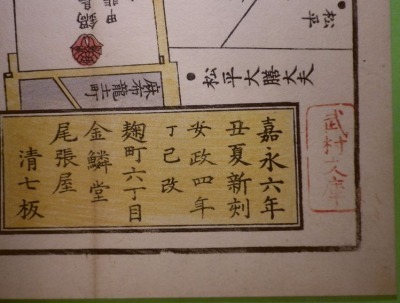 松平
松平大膳大夫
麻布龍土町
嘉永六年
丑夏新刻
安政四年
丁巳改
麹町六丁目
金鱗堂
尾張屋
清七板